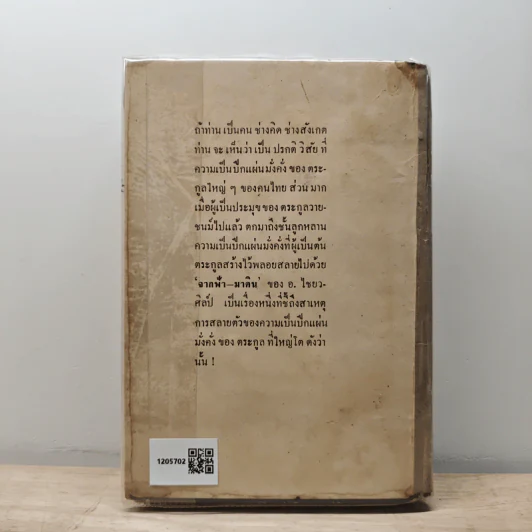 ถ้าท่าน เป็นคน ช่างคิด ช่างสังเกต
ท่าน จะ เห็นว่า เป็น ปรกติ วิสัย ที่
ความเป็นปึกแผ่นมั่งคั่ง ของ ตระ-
กูลใหญ่ ๆ ของคนไทย ส่วน มาก
เมื่อผู้เป็นประมุขของ ตระกูลวาย-
ชนม์ไปแล้ว ตกมาถึงชั้นลูกหลาน
ความเป็นปึกแผ่นมั่งคั่งที่ผู้เป็นต้น
ตระกูลสร้างไว้พลอยสลายไปด้วย
'จากฟ้า—มาดิน' ของ อ. ไชยว-
ศิลป์ เป็นเรื่องหนึ่งที่ชี้ถึงสาเหตุ
การสลายตัวของความเป็นปึกแผ่น
มั่งคั่ง ของ ตระกูล ที่ใหญ่โต ดังว่า
นั้น !
1205702